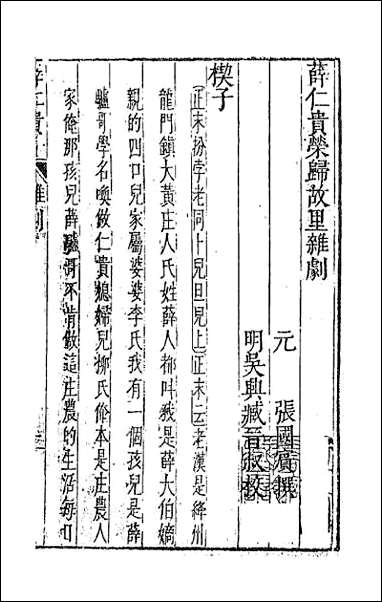 薛仁貴榮歸故里雜劇
元　張國賓撰
明吳興臧晉叔校
楔子
正末扮孛老同卜兒旦兒上正末云老漢是絳州
龍門鎮大黃庄人氏姓薛人都叫我是薛大伯嫡
親的四口兒家屬婆婆李氏我有一個孩兒是薛
驢哥學名喚做仁貴媳婦兒柳氏俺本是庄農人
家俺那孩兒薛驢哥不肯做這庄農的生活每日
薛仁貴
雜劇